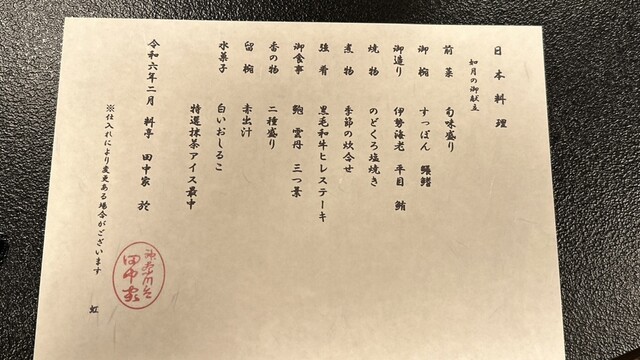 日本料理
如月の御献立
前菜 旬味盛り
御椀 すっぽん 鱶鰭
御造り 伊勢海老 平目 鮪
焼物 のどくろ塩焼き
煮物 季節の炊合せ
強肴 黒毛和牛ヒレステーキ
御食事 鮑 雲丹 三つ葉
香の物 二種盛り
留椀 赤出汁
水菓子 白いおしるこ
特選抹茶アイス最中
令和六年二月 料亭 田中家 於
※仕入れにより変更ある場合がございます
神奈川台
田中家